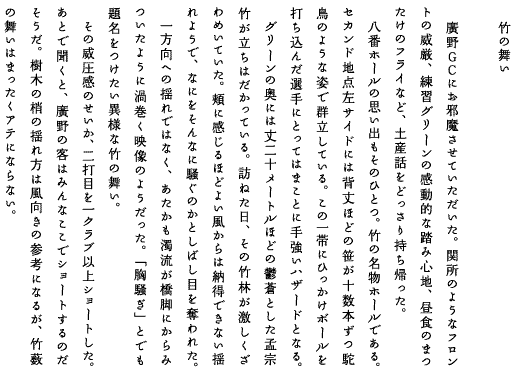 竹の舞い
廣野GCにお邪魔させていただいた。関所のようなフロン
トの威厳、練習グリーンの感動的な踏み心地、昼食のまつ
たけのフライなど、土産話をどっさり持ち帰った。
八番ホールの思い出もそのひとつ。竹の名物ホールである。
セカンド地点左サイドには背丈ほどの笹が十数本ずつ駝
鳥のような姿で群立している。この一帯にひっかけボールを
打ち込んだ選手にとってはまことに手強いハザードとなる。
グリーンの奥には丈二十メートルほどの鬱蒼とした孟宗
竹が立ちはだかっている。訪ねた日、その竹林が激しくざ
わめいていた。頬に感じるほどよい風からは納得できない揺
れようで、なにをそんなに騒ぐのかとしばし目を奪われた。
一方向への揺れではなく、あたかも濁流が橋脚にからみ
ついたように渦巻く映像のようだった。「胸騒ぎ」とでも
題名をつけたい異様な竹の舞い。
その威圧感のせいか、二打目を一クラブ以上ショートした。
あとで聞くと、廣野の客はみんなここでショートするのだ
そうだ。樹木の梢の揺れ方は風向きの参考になるが、竹藪
の舞いはまったくアテにならない。